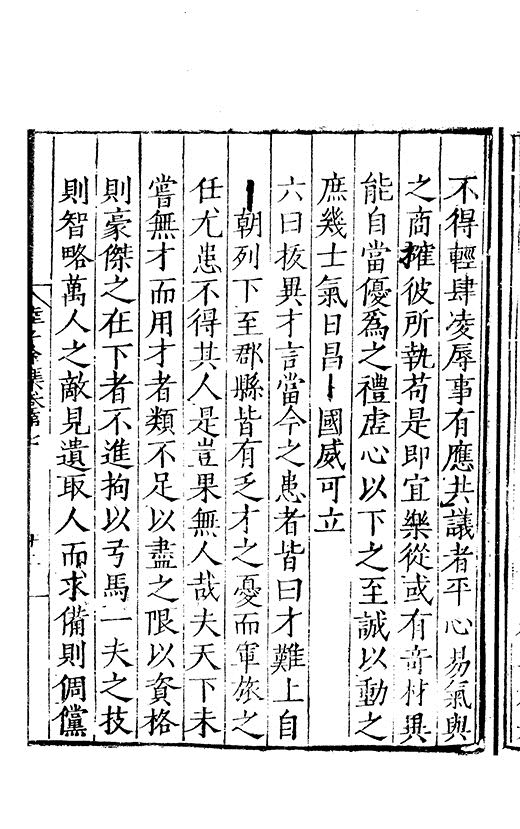 不得輕肆凌辱事有應共議者平心易氣與
之商搉彼所執苟是即宜樂從或有奇材異
能自當優爲之禮虛心以下之至誠以動之
庶幾士氣日昌國威可立
六曰拔異才言當今之患者皆曰才難上自
朝列下至郡縣皆有乏才之憂而軍旅之
任尤患不得其人是豈果無人哉夫天下未
嘗無才而用才者類不足以盡之限以資格
則豪傑之在下者不進拘以弓馬一夫之技
則智略萬人之敵見遺取人而求備則倜儻